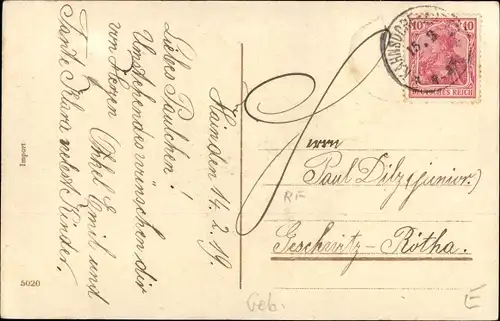 Hainden 14.2.19.
Liebes Paulchen!
Umstehendes wünschen dir
von Herzen Onkel Emil und
Tante Klara nebst Kinder.
Import
5020
10 10
DEUTSCHES REICH
Herrn
Paul Dilz (junior.)
RF
Geschwitz-Rötha.
Geb.
E